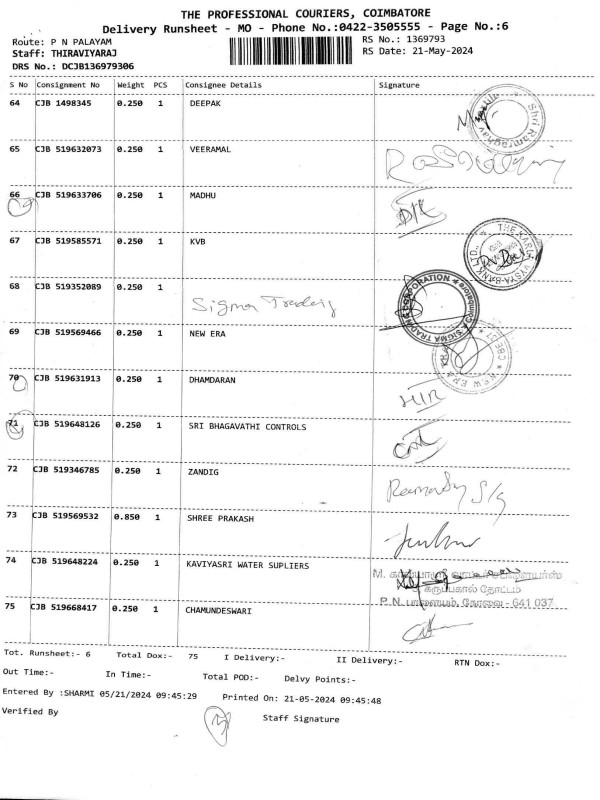 THE PROFESSIONAL COURIERS, COIMBATORE
Delivery Runsheet - MO - Phone No.:0422-3505555 - Page No.:6
Route: P N PALAYAM RS No.: 1369793
Staff: THIRAVIYARAJ RS Date: 21-May-2024
DRS No.: DCJB136979306
S No Consignment No Weight PCS Consignee Details Signature
64 CJB 1498345 0.250 1 DEEPAK
Shri Ramraghav
65 CJB 519632073 0.250 1 VEERAMAL
66 CJB 519633706 0.250 1 MADHU
67 CJB 519585571 0.250 1 KVB
THE KARUR VYSYA BANK LTD
68 CJB 519352089 0.250 1
Sigma Trading
SIGMA TRADING CORPORATION Coimbatore
69 CJB 519569466 0.250 1 NEW ERA
NEW ERA CBE
70 CJB 519631913 0.250 1 DHAMDARAN
71 CJB 519648126 0.250 1 SRI BHAGAVATHI CONTROLS
72 CJB 519346785 0.250 1 ZANDIG
73 CJB 519569532 0.850 1 SHREE PRAKASH
74 CJB 519648224 0.250 1 KAVIYASRI WATER SUPLIERS
தோட்டம்
P.N. பாளையம், கோவை - 641 037
75 CJB 519668417 0.250 1 CHAMUNDESWARI
Tot. Runsheet:- 6 Total Dox:- 75 I Delivery:- II Delivery:- RTN Dox:-
Out Time:- In Time:- Total POD:- Delvy Points:-
Entered By :SHARMI 05/21/2024 09:45:29 Printed On: 21-05-2024 09:45:48
Verified By Staff Signature